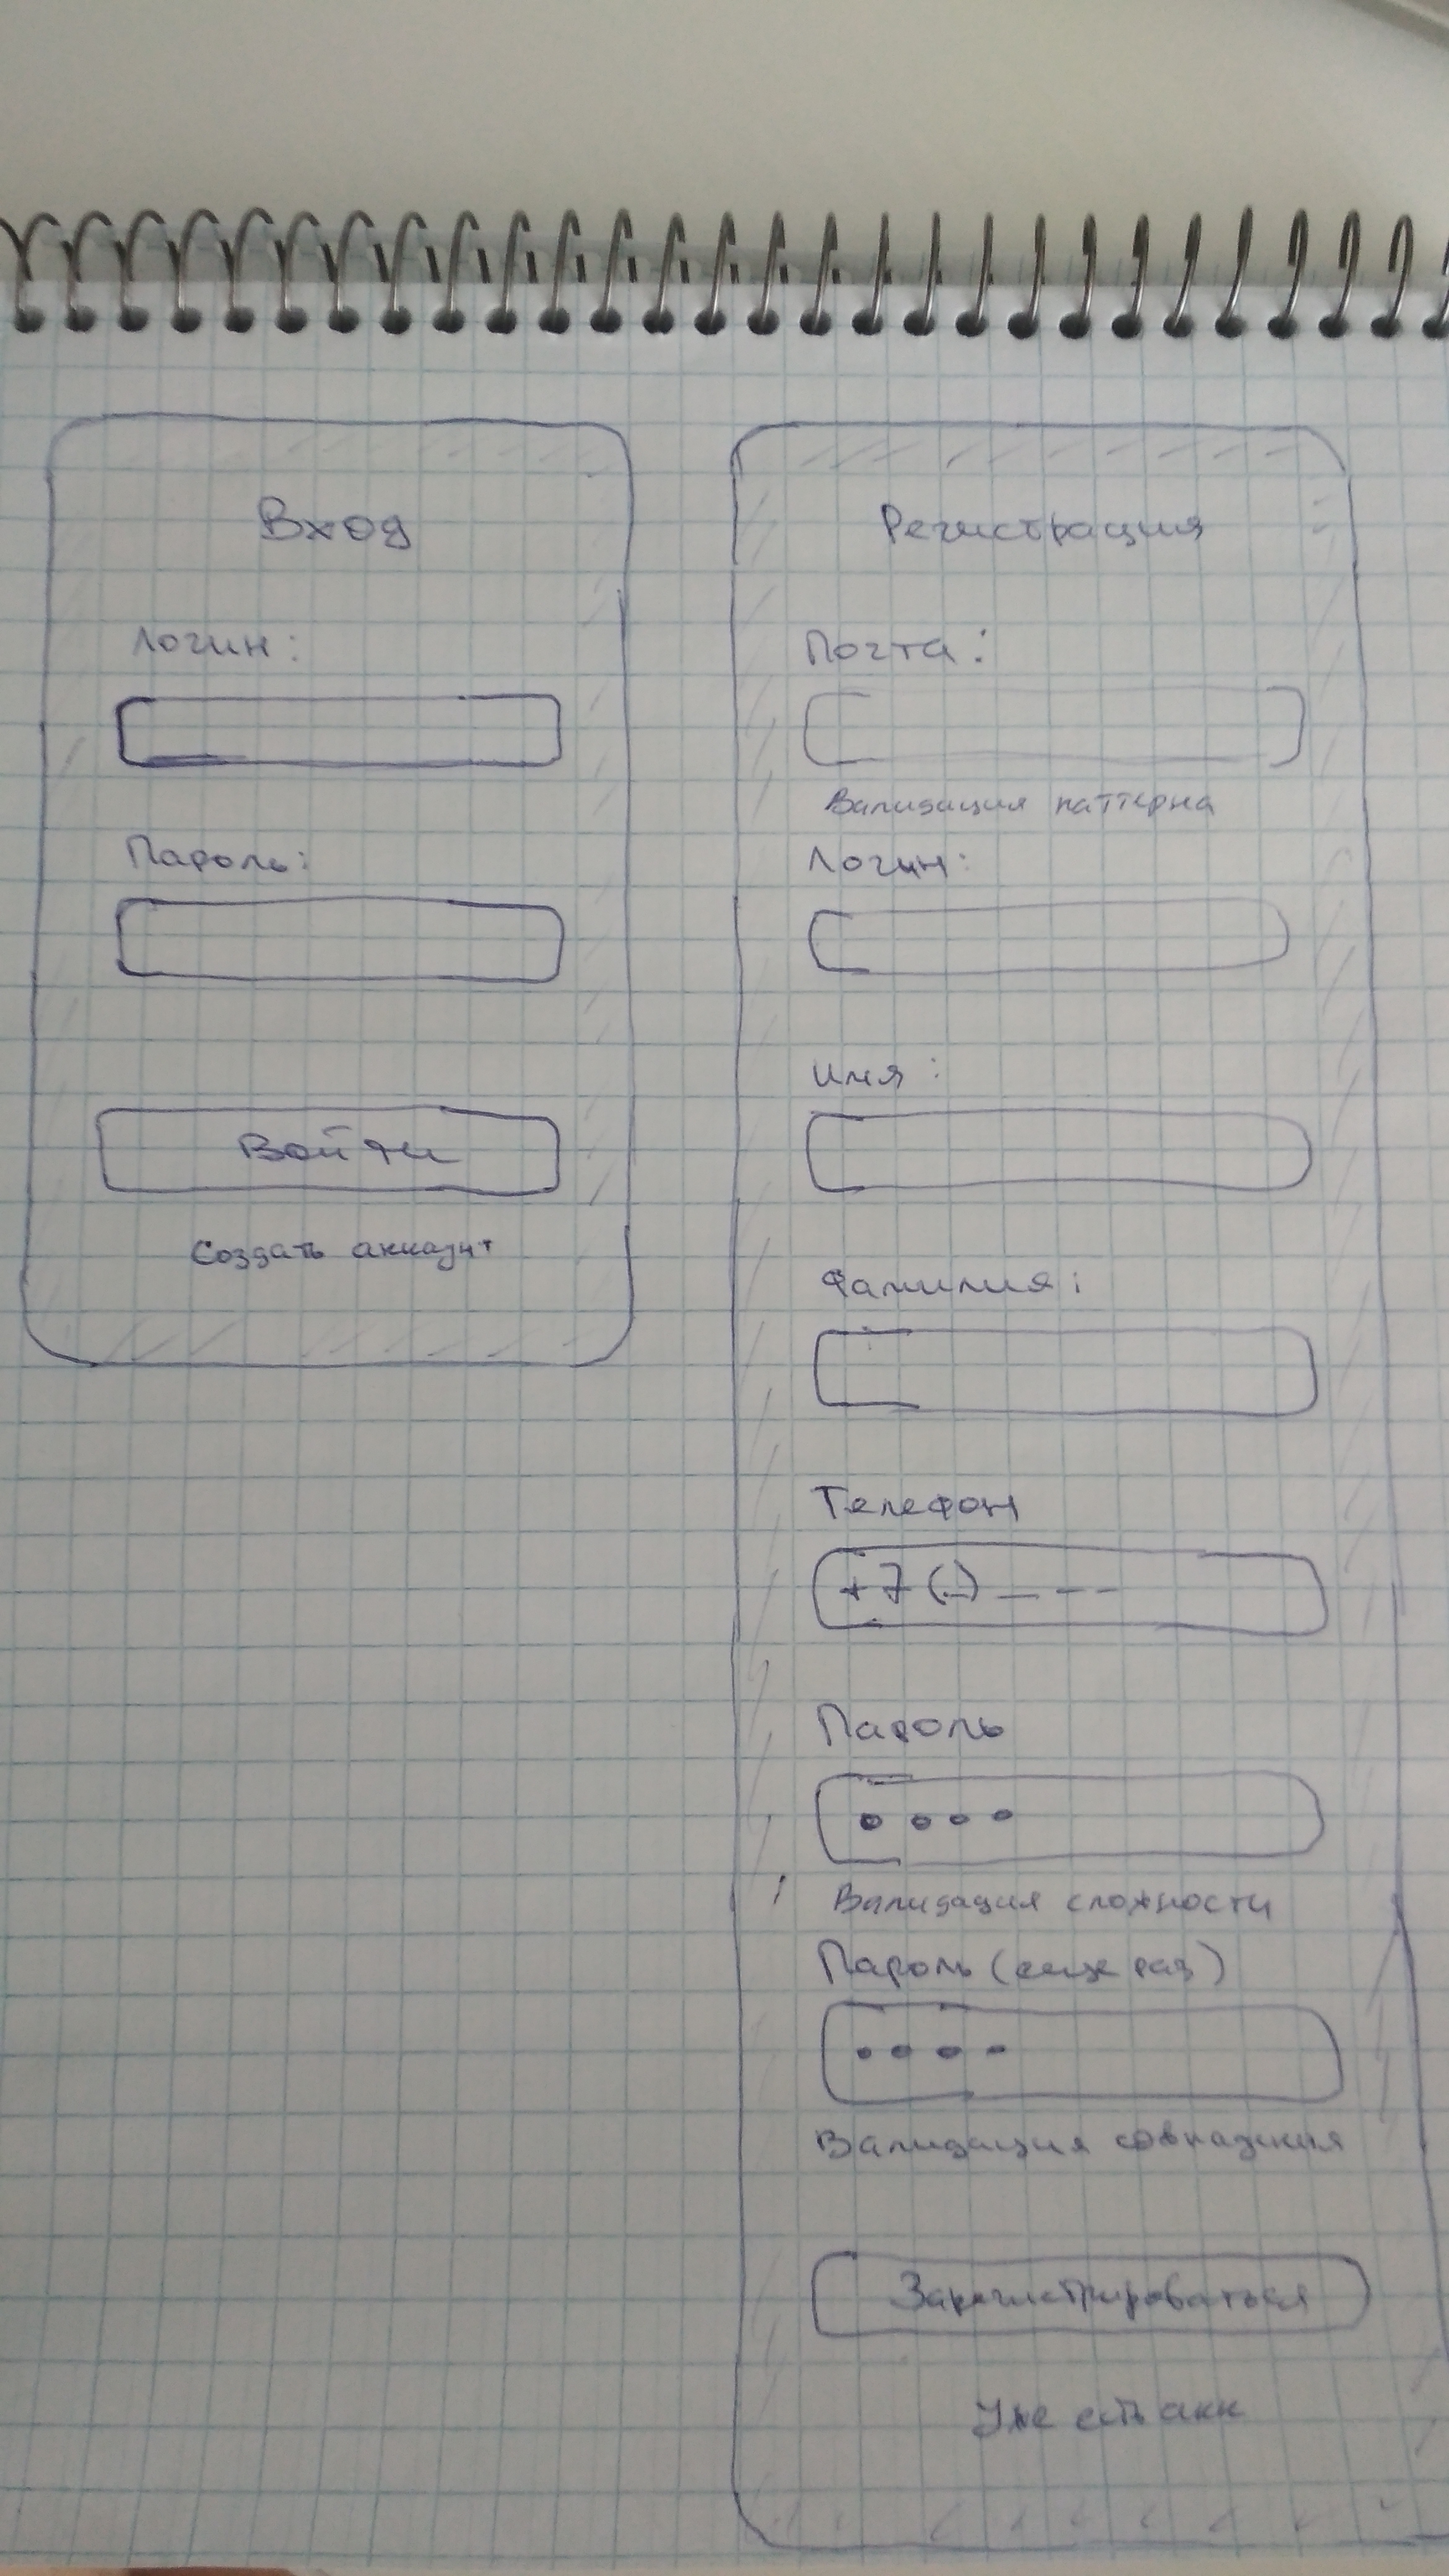 Вход
Логин:
Пароль:
Войти
Создать аккаунт
Регистрация
Почта:
Валидация паттерна
Логин:
Имя:
Фамилия:
Телефон
+7 (_) _ - -
Пароль
Валидация сложности
Пароль (еще раз)
Валидация совпадения
Зарегистрироваться
Уже есть акк